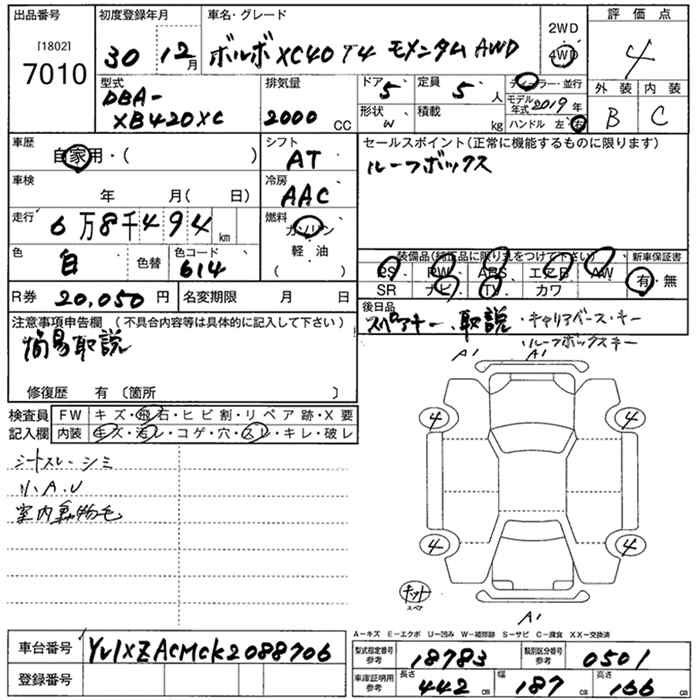 出品番号
[1802]
7010
初度登録年月
30 12月
車名・グレード
ボルボ XC40 T4 モメンタム AWD
2WD
4WD
評価点
4
外装 内装
B C
型式
DBA-
XB420XC
排気量
2000 CC
ドア 5
定員 5 人
形状 W
積載 kg
ディーラー・並行
モデル年式 2019 年
ハンドル 左 右
車歴
自家用・( )
シフト
AT
セールスポイント(正常に機能するものに限ります)
ルーフボックス
車検
年 月( 日)
冷房
AAC
走行
6万8千494 km
燃料
ガソリン
軽・油
( )
色
白
色替
色コード
614
装備品(純正品に限り丸をつけて下さい)
PS PW ABS エアB AW
SR ナビ TV カワ
新車保証書
有・無
R券 20,050 円
名変期限 月 日
後日品
スペアキー・取説・キャリアベース・キー
・ルーフボックスキー
注意事項申告欄 (不具合内容等は具体的に記入して下さい)
簡易取説
修復歴 有〔箇所 〕
検査員
記入欄
FW キズ・飛石・ヒビ割・リペア跡・X要
内装 キズ・汚レ・コゲ・穴・スレ・キレ・破レ
シートスレ・シミ
リ、A、U
室内動物毛
A1 A1
4 4
4 4
キット
スペア
A1
A-キズ E-エクボ U-凹み W-補修跡 S-サビ C-腐食 XX-交換済
車台番号 YV1XZACMCK2088706
登録番号
型式指定番号
参考
18783
類別区分番号
参考
0501
車庫証明用
参考
長さ 442 cm
幅 187 cm
高さ 166 cm